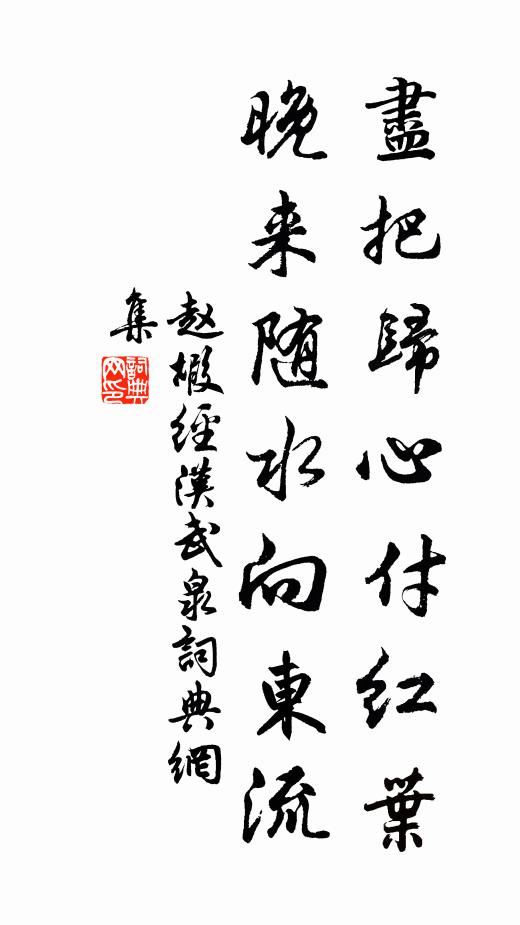 盡把歸心付紅葉
晚来随水向東流
赵嘏經漢武泉詞典網
集
詞典
网印